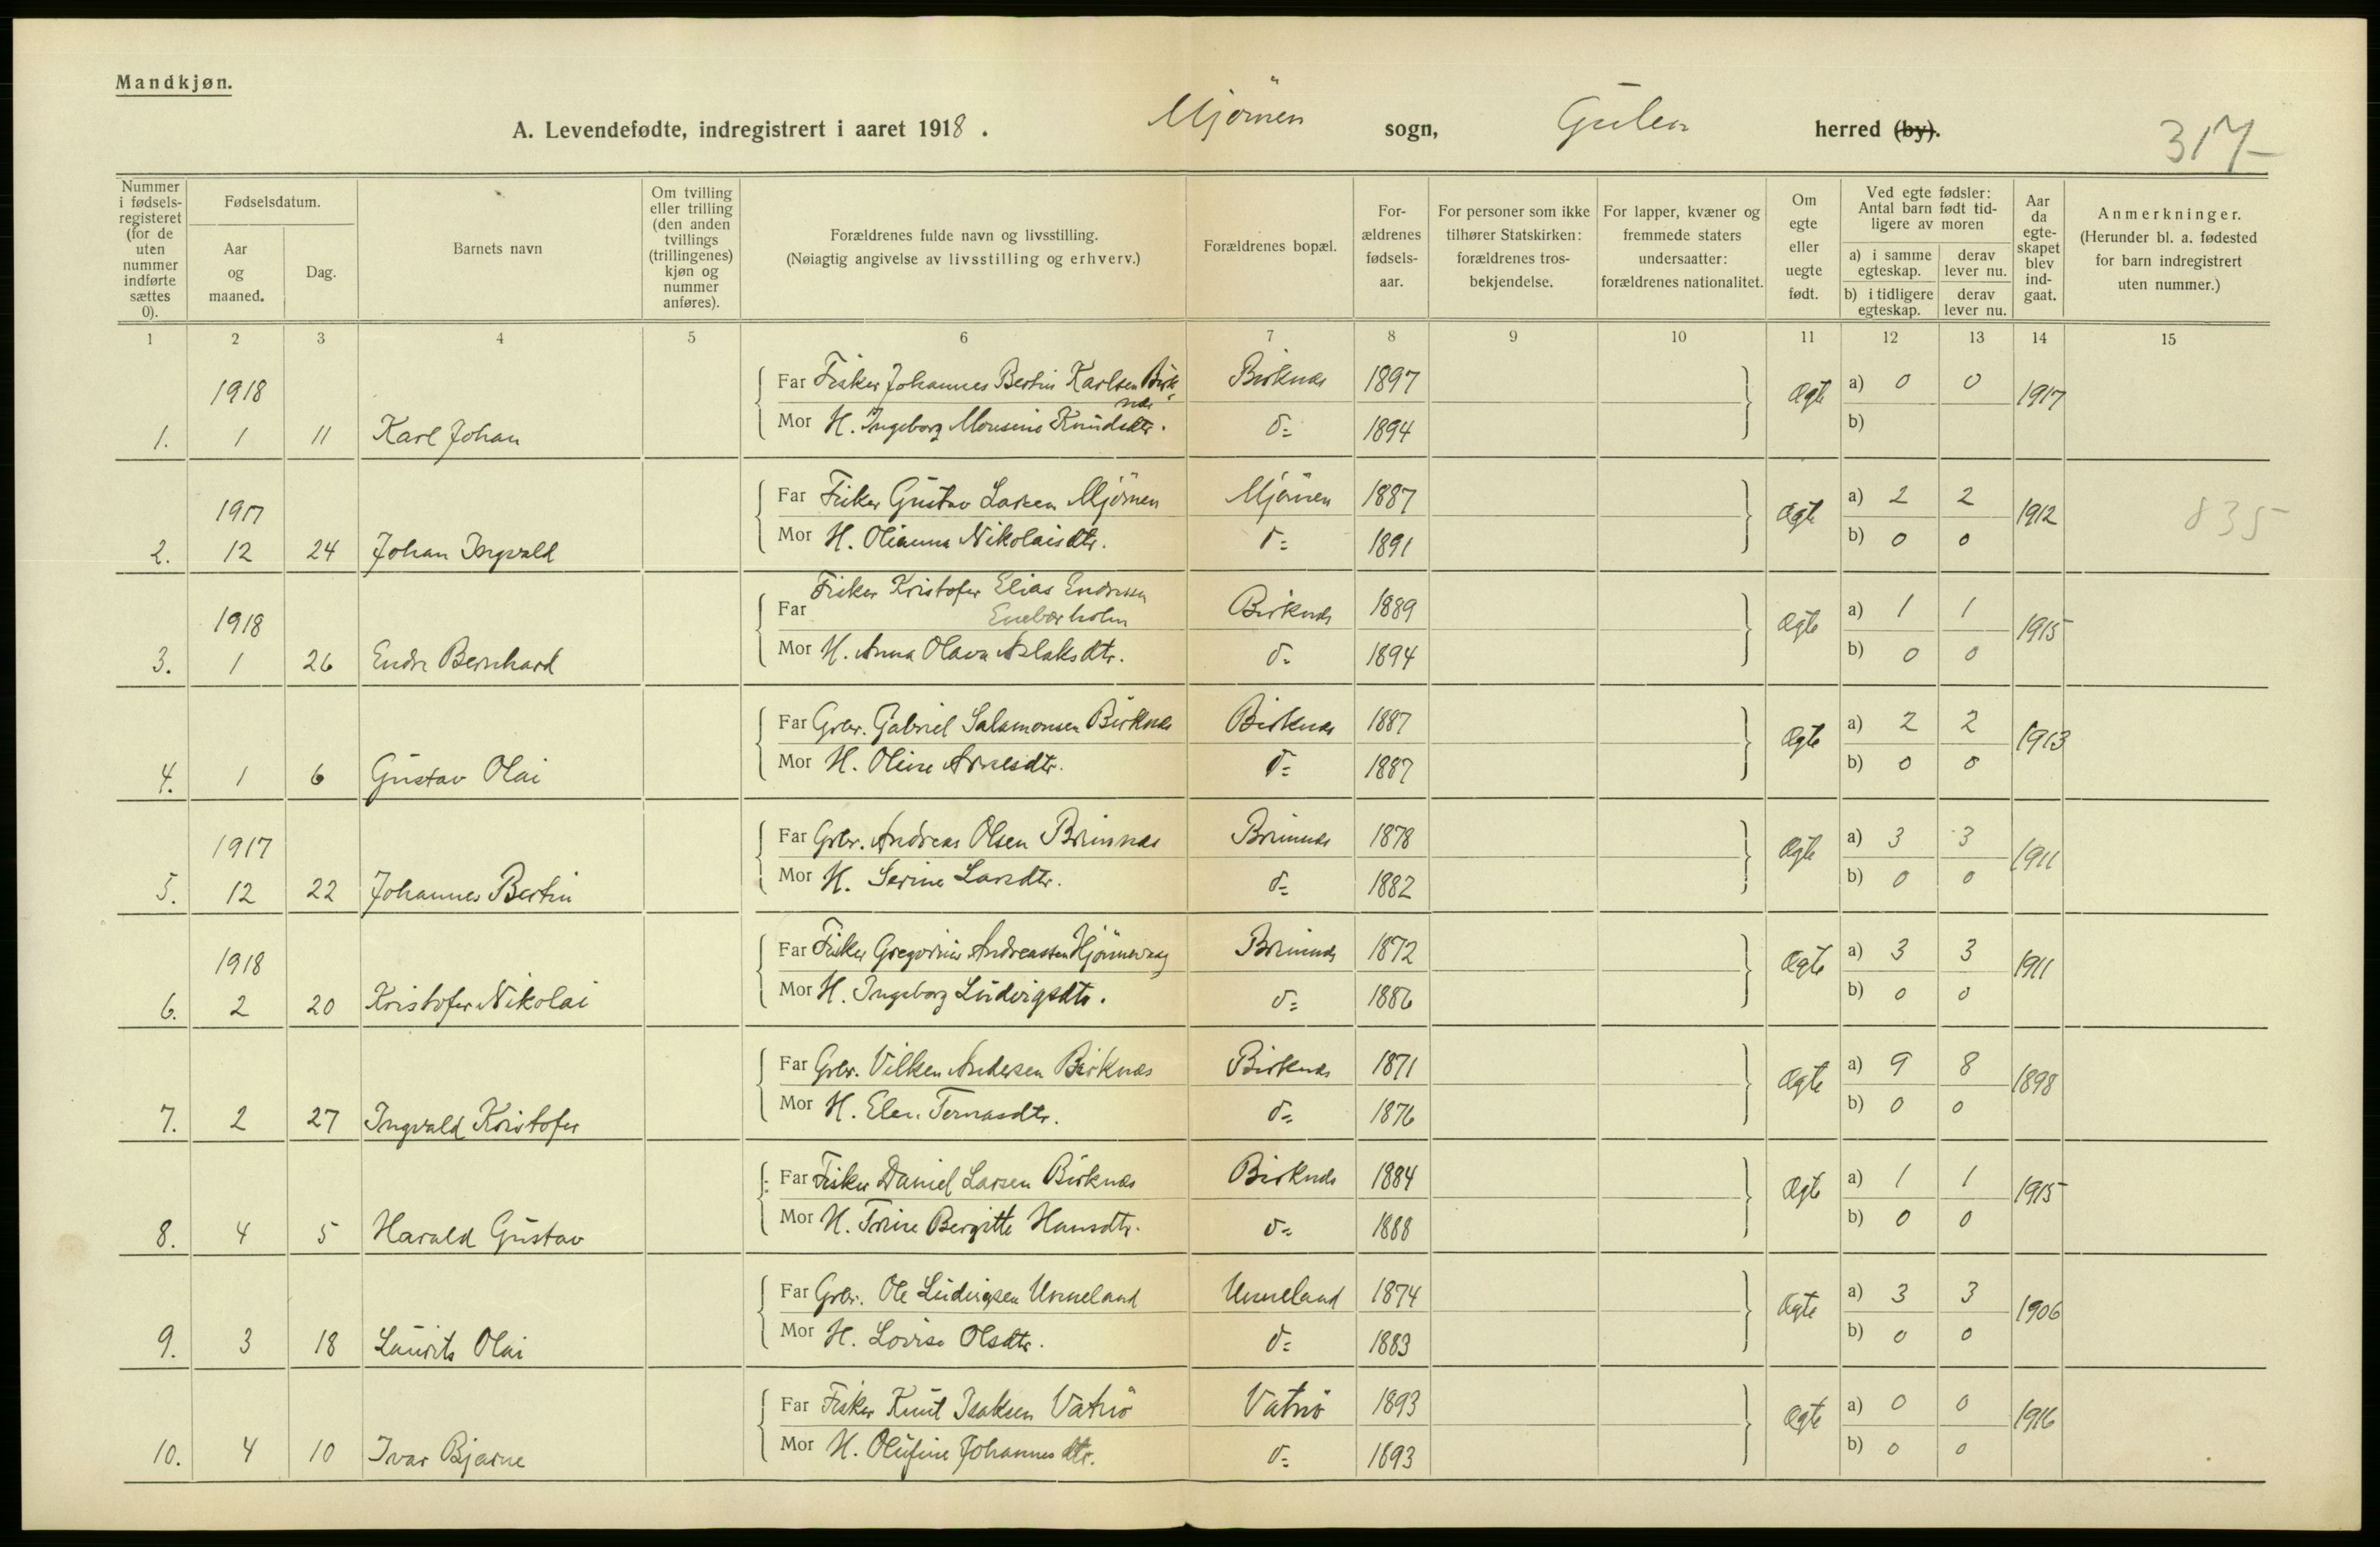 Mandkjøn.
A. Levendefødte, indregistrert i aaret 1918. Mjømen sogn, Gulen herred (by).
317-
Nummer i fødselsregisteret (for de uten nummer indførte sættes 0).
Fødselsdatum.
Aar og maaned.
Dag.
Barnets navn
Om tvilling eller trilling (den anden tvillings (trillingenes) kjøn og nummer anføres).
Forældrenes fulde navn og livsstilling.
(Nøiagtig angivelse av livsstilling og erhverv.)
Forældrenes bopæl.
Forældrenes fødselsaar.
For personer som ikke tilhører Statskirken: forældrenes trosbekjendelse.
For lapper, kvæner og fremmede staters undersaatter: forældrenes nationalitet.
Om egte eller uegte født.
Ved egte fødsler: Antal barn født tidligere av moren
a) i samme egteskap.
derav lever nu.
b) i tidligere egteskap.
derav lever nu.
Aar da egteskapet blev indgaat.
Anmerkninger.
(Herunder bl. a. fødested for barn indregistrert uten nummer.)
1 2 3 4 5 6 7 8 9 10 11 12 13 14 15
1918
Far Fisker Johannes Bertin Karlsen Birknæs Birknæs 1897 Ægte a) 0 0 1917
1. 1 11 Karl Johan Mor H. Ingeborg Monsine Knudsdtr. do 1894 b)
1917
Far Fisker Gustav Larsen Mjømen Mjømen 1887 Ægte a) 2 2 1912
2. 12 24 Johan Ingvald Mor H. Olianna Nikolaisdtr. do 1891 b) 0 0
835
1918
Far Fisker Kristofer Elias Endresen
Enebærholm Birknæs 1889 Ægte a) 1 1 1915
3. 1 26 Endre Bernhard Mor H. Anna Olava Aslaksdtr. do 1894 b) 0 0
Far Grbr. Gabriel Salamonsen Birknæs Birknæs 1887 Ægte a) 2 2 1913
4. 1 6 Gustav Olai Mor H. Oline Arnesdtr. do 1887 b) 0 0
1917
Far Grbr. Andreas Olsen Brimnæs Brimnæs 1878 Ægte a) 3 3 1911
5. 12 22 Johannes Bertin Mor H. Serine Larsdtr. do 1882 b) 0 0
1918
Far Fisker Gregorius Andreassen Brimnæs 1872 Ægte a) 3 3 1911
6. 2 20 Kristofer Nikolai Mor H. Ingeborg Ludvigsdtr. do 1886 b) 0 0
Far Grbr. Vilken Andersen Birknæs Birknæs 1871 Ægte a) 9 8 1898
7. 2 27 Ingvald Kristofer Mor H. Elen do 1876 b) 0 0
Far Fisker Daniel Larsen Birknæs Birknæs 1884 Ægte a) 1 1 1915
8. 4 5 Harald Gustav Mor H. Trine Bergitte Hansdtr. do 1888 b) 0 0
Far Grbr. Ole Ludvigsen Unneland Unneland 1874 Ægte a) 3 3 1906
9. 3 18 Laurits Olai Mor H. Lovise Olsdtr. do 1883 b) 0 0
Far Fisker Knut Isaksen Vatnø Vatnø 1893 Ægte a) 0 0 1916
10. 4 10 Ivar Bjarne Mor H. Olufine Johannesdtr. do 1893 b) 0 0